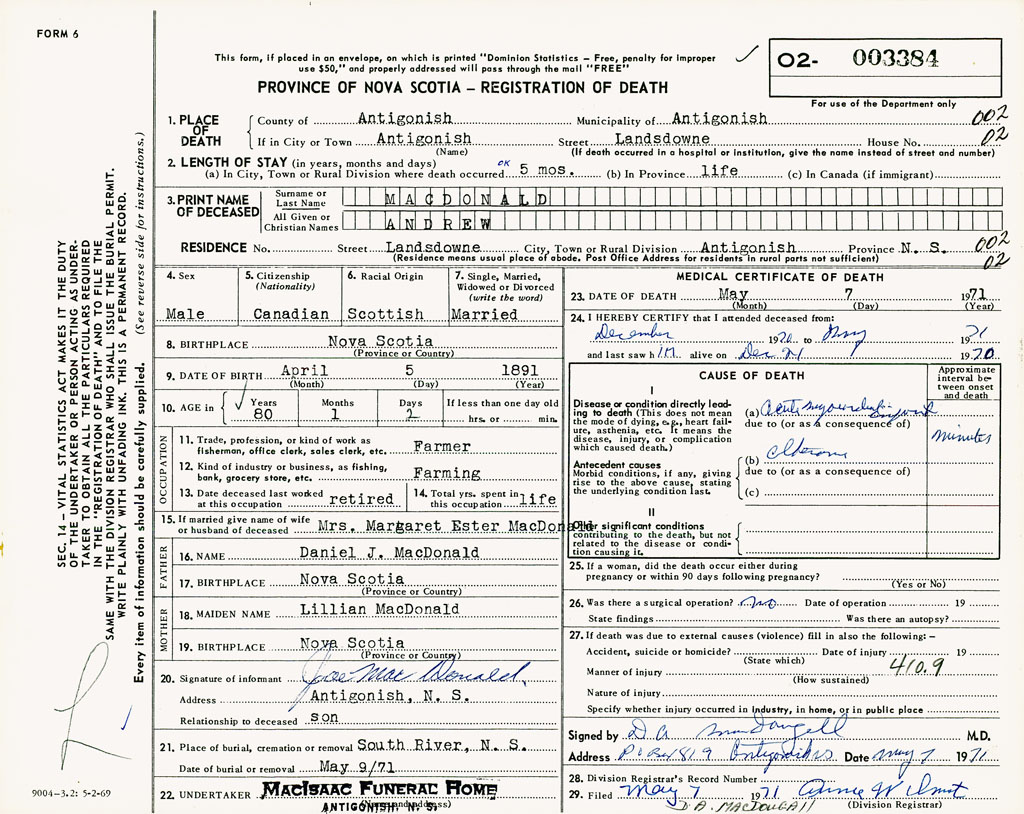 FORM 6
This form, if placed in an envelope, on which is printed "Dominion Statistics – Free, penalty for improper
use $50," and properly addressed will pass through the mail "FREE"
02- 003384
For use of the Department only
PROVINCE OF NOVA SCOTIA – REGISTRATION OF DEATH
1. PLACE OF DEATH
County of Antigonish Municipality of Antigonish 002
If in City or Town Antigonish Street Landsdowne House No. 02
(Name) (If death occurred in a hospital or institution, give the name instead of street and number)
2. LENGTH OF STAY (in years, months and days)
(a) In City, Town or Rural Division where death occurred OK 5 mos. (b) In Province life (c) In Canada (if immigrant)
3. PRINT NAME OF DECEASED
Surname or Last Name MACDONALD
All Given or Christian Names ANDREW
RESIDENCE No. Street Landsdowne City, Town or Rural Division Antigonish Province N. S. 002
(Residence means usual place of abode. Post Office Address for residents in rural parts not sufficient) 02
4. Sex
Male
5. Citizenship (Nationality)
Canadian
6. Racial Origin
Scottish
7. Single, Married, Widowed or Divorced (write the word)
Married
8. BIRTHPLACE Nova Scotia
(Province or Country)
9. DATE OF BIRTH April 5 1891
(Month) (Day) (Year)
10. AGE in Years 80 Months 1 Days 2 If less than one day old hrs. or min.
OCCUPATION
11. Trade, profession, or kind of work as
fisherman, office clerk, sales clerk, etc. Farmer
12. Kind of industry or business, as fishing,
bank, grocery store, etc. Farming
13. Date deceased last worked at this occupation retired
14. Total yrs. spent in this occupation life
15. If married give name of wife
or husband of deceased Mrs. Margaret Ester MacDonald
FATHER
16. NAME Daniel J. MacDonald
17. BIRTHPLACE Nova Scotia
(Province or Country)
MOTHER
18. MAIDEN NAME Lillian MacDonald
19. BIRTHPLACE Nova Scotia
(Province or Country)
20. Signature of informant Joe MacDonald
Address Antigonish, N. S.
Relationship to deceased son
21. Place of burial, cremation or removal South River, N. S.
Date of burial or removal May 9/71
22. UNDERTAKER MACISAAC FUNERAL HOME
ANTIGONISH, N. S.
MEDICAL CERTIFICATE OF DEATH
23. DATE OF DEATH May 7 1971
(Month) (Day) (Year)
24. I HEREBY CERTIFY that I attended deceased from:
December 1970 to May 1971
and last saw him alive on Dec 21 1970
CAUSE OF DEATH
Approximate interval between onset and death
I
Disease or condition directly leading to death (This does not mean the mode of dying, e.g., heart failure, asthenia, etc. It means the disease, injury, or complication which caused death.)
(a) Acute myocardial
due to (or as a consequence of)
minutes
Antecedent causes
Morbid conditions, if any, giving rise to the above cause, stating the underlying condition last.
(b)
due to (or as a consequence of)
(c)
II
Other significant conditions
contributing to the death, but not related to the disease or condition causing it.
25. If a woman, did the death occur either during
pregnancy or within 90 days following pregnancy?
(Yes or No)
26. Was there a surgical operation? no Date of operation 19
State findings Was there an autopsy?
27. If death was due to external causes (violence) fill in also the following: –
Accident, suicide or homicide? Date of injury 19
(State which)
Manner of injury 410.9
(How sustained)
Nature of injury
Specify whether injury occurred in industry, in home, or in public place
Signed by D A MacDougall M.D.
Address P O Box 819 Antigonish Date May 7 1971
28. Division Registrar's Record Number
29. Filed May 7 1971 Annie W
D.A. MACDOUGALL (Division Registrar)
SEC. 14 – VITAL STATISTICS ACT MAKES IT THE DUTY
OF THE UNDERTAKER OR PERSON ACTING AS UNDERTAKER TO OBTAIN ALL THE PARTICULARS REQUIRED
IN THE "REGISTRATION OF DEATH" AND TO FILE THE
SAME WITH THE DIVISION REGISTRAR WHO SHALL ISSUE THE BURIAL PERMIT.
WRITE PLAINLY WITH UNFADING INK. THIS IS A PERMANENT RECORD.
Every item of information should be carefully supplied. (See reverse side for instructions.)
9004-3.2: 5-2-69